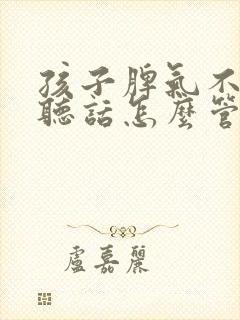 孩子脾氣不
聽話怎麼管
盧嘉麗